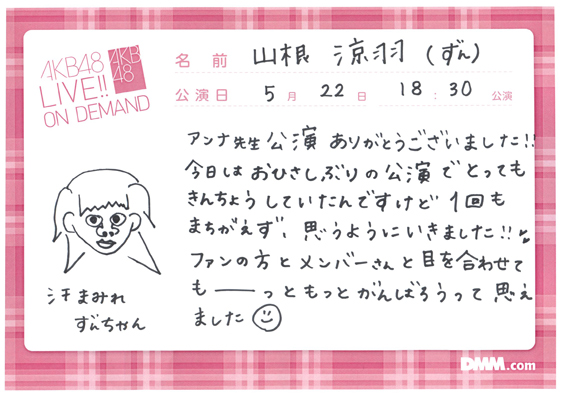 AKB48
LIVE!!
ON DEMAND
AKB
48
名前 山根 涼羽 (ずん)
公演日 5月 22日 18:30公演
アンナ先生公演 ありがとうございました!!
今日はおひさしぶりの公演でとっても
きんちょうしていたんですけど 1回も
まちがえず、思うようにいきました!!
ファンの方とメンバーさんと目を合わせて
も――っともっとがんばろうって思え
ました
汗まみれ
ずんちゃん
DMM.com